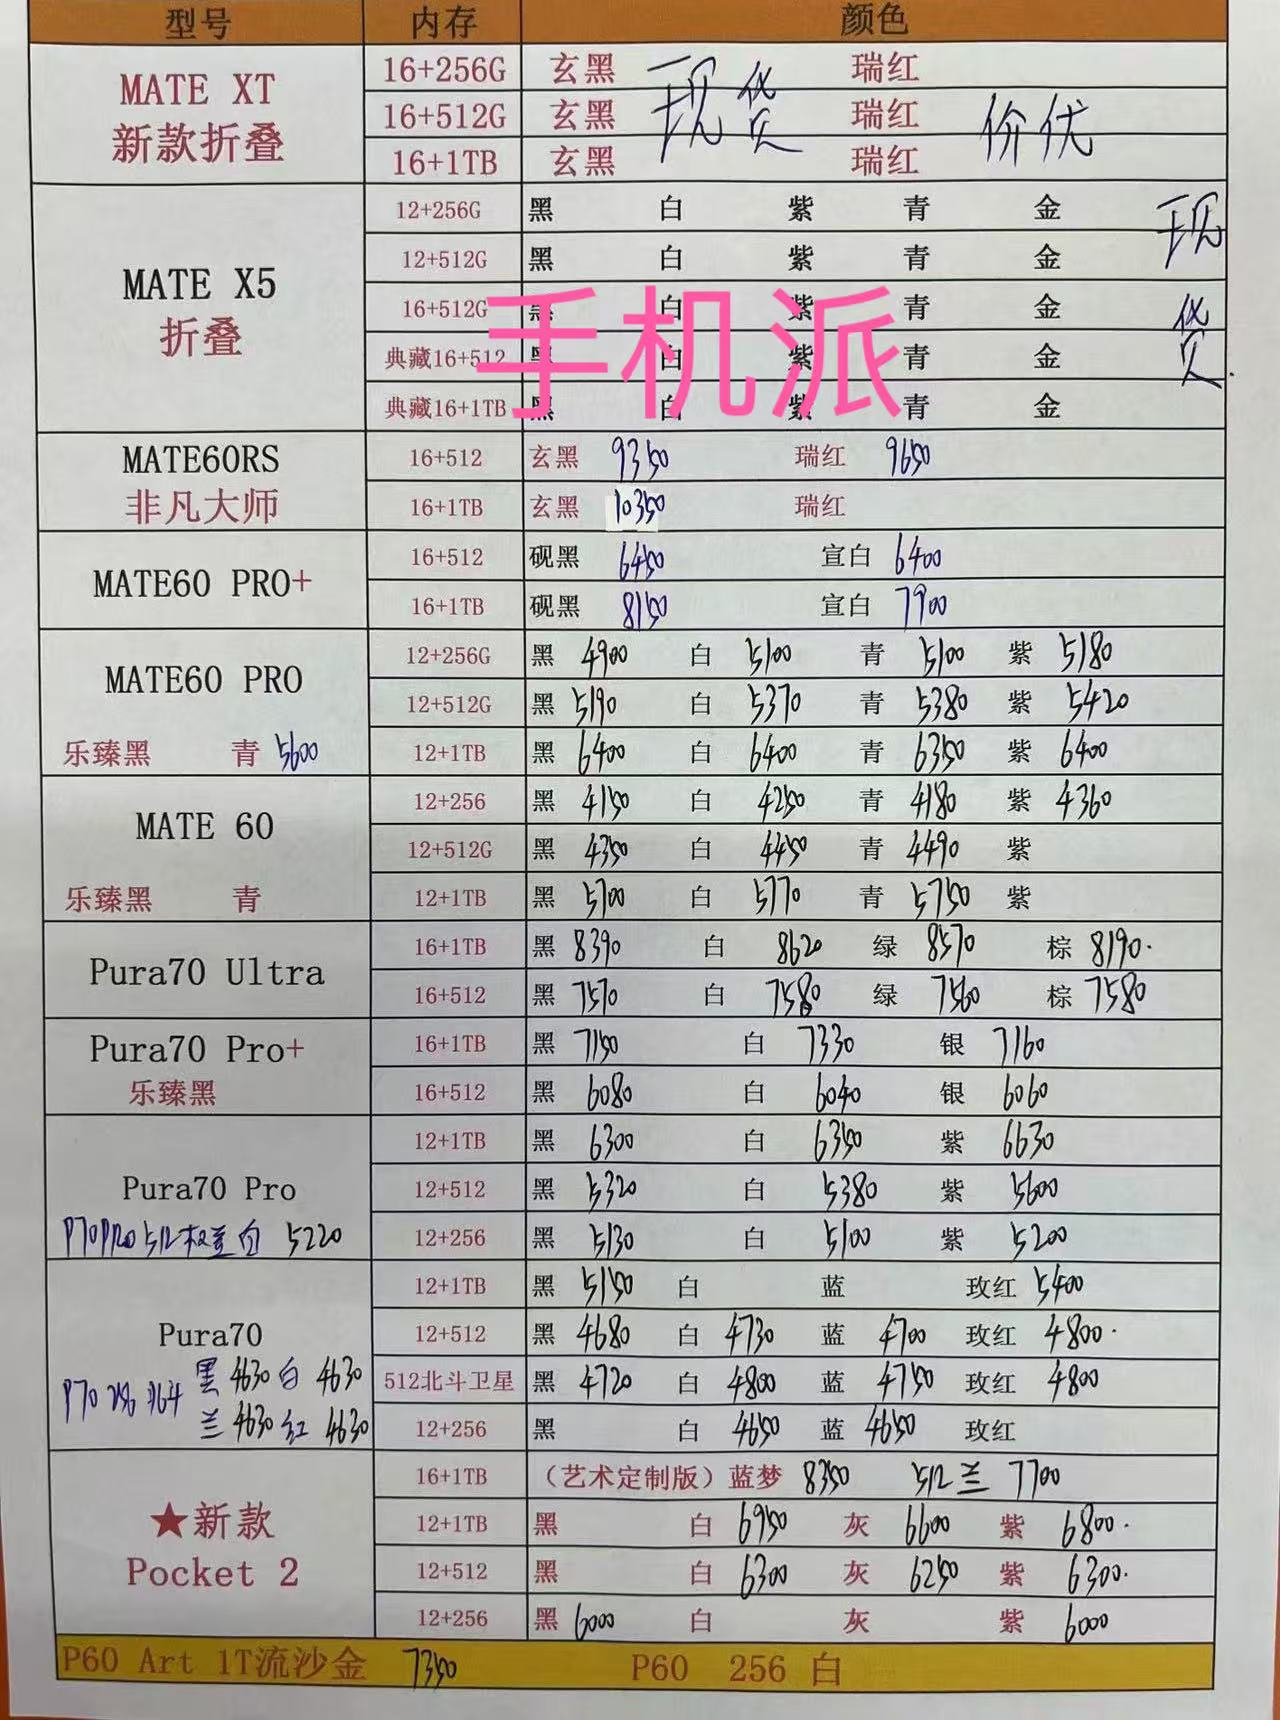 型号 内存 颜色
MATE XT 新款折叠
16+256G 玄黑 瑞红
16+512G 玄黑 现货 瑞红 价优
16+1TB 玄黑 瑞红
MATE X5 折叠
12+256G 黑 白 紫 青 金 现货
12+512G 黑 白 紫 青 金
16+512G 黑 白 紫 青 金
手机派
典藏16+512 黑 白 紫 青 金
典藏16+1TB 黑 白 紫 青 金
MATE60RS 非凡大师
16+512 玄黑 9350 瑞红 9650
16+1TB 玄黑 10350 瑞红
MATE60 PRO+
16+512 砚黑 6450 宣白 6400
16+1TB 砚黑 8150 宣白 7900
MATE60 PRO
12+256G 黑 4900 白 5100 青 5100 紫 5180
12+512G 黑 5190 白 5370 青 5380 紫 5420
乐臻黑 青 5600
12+1TB 黑 6400 白 6400 青 6350 紫 6400
MATE 60
12+256 黑 4150 白 4250 青 4180 紫 4360
12+512G 黑 4350 白 4450 青 4490 紫
乐臻黑 青
12+1TB 黑 5700 白 5770 青 5750 紫
Pura70 Ultra
16+1TB 黑 8390 白 8620 绿 8570 棕 8190.
16+512 黑 7570 白 7580 绿 7560 棕 7580
Pura70 Pro+
乐臻黑
16+1TB 黑 7150 白 7330 银 7160
16+512 黑 6080 白 6040 银 6060
Pura70 Pro
12+1TB 黑 6300 白 6350 紫 6630
12+512 黑 5320 白 5380 紫 5600
P70PRO 512 白 5220
12+256 黑 5130 白 5100 紫 5200
Pura70
12+1TB 黑 5150 白 蓝 玫红 5400
12+512 黑 4680 白 4730 蓝 4700 玫红 4800.
P70 256 黑 4630 白 4630
兰 4630 红 4630
512北斗卫星 黑 4720 白 4800 蓝 4750 玫红 4800
12+256 黑 白 4650 蓝 4650 玫红
★新款
Pocket 2
16+1TB （艺术定制版）蓝梦 8350 512 兰 7700
12+1TB 黑 白 6950 灰 6600 紫 6800.
12+512 黑 白 6300 灰 6250 紫 6300.
12+256 黑 6000 白 灰 紫 6000
P60 Art 1T流沙金 7350 P60 256 白